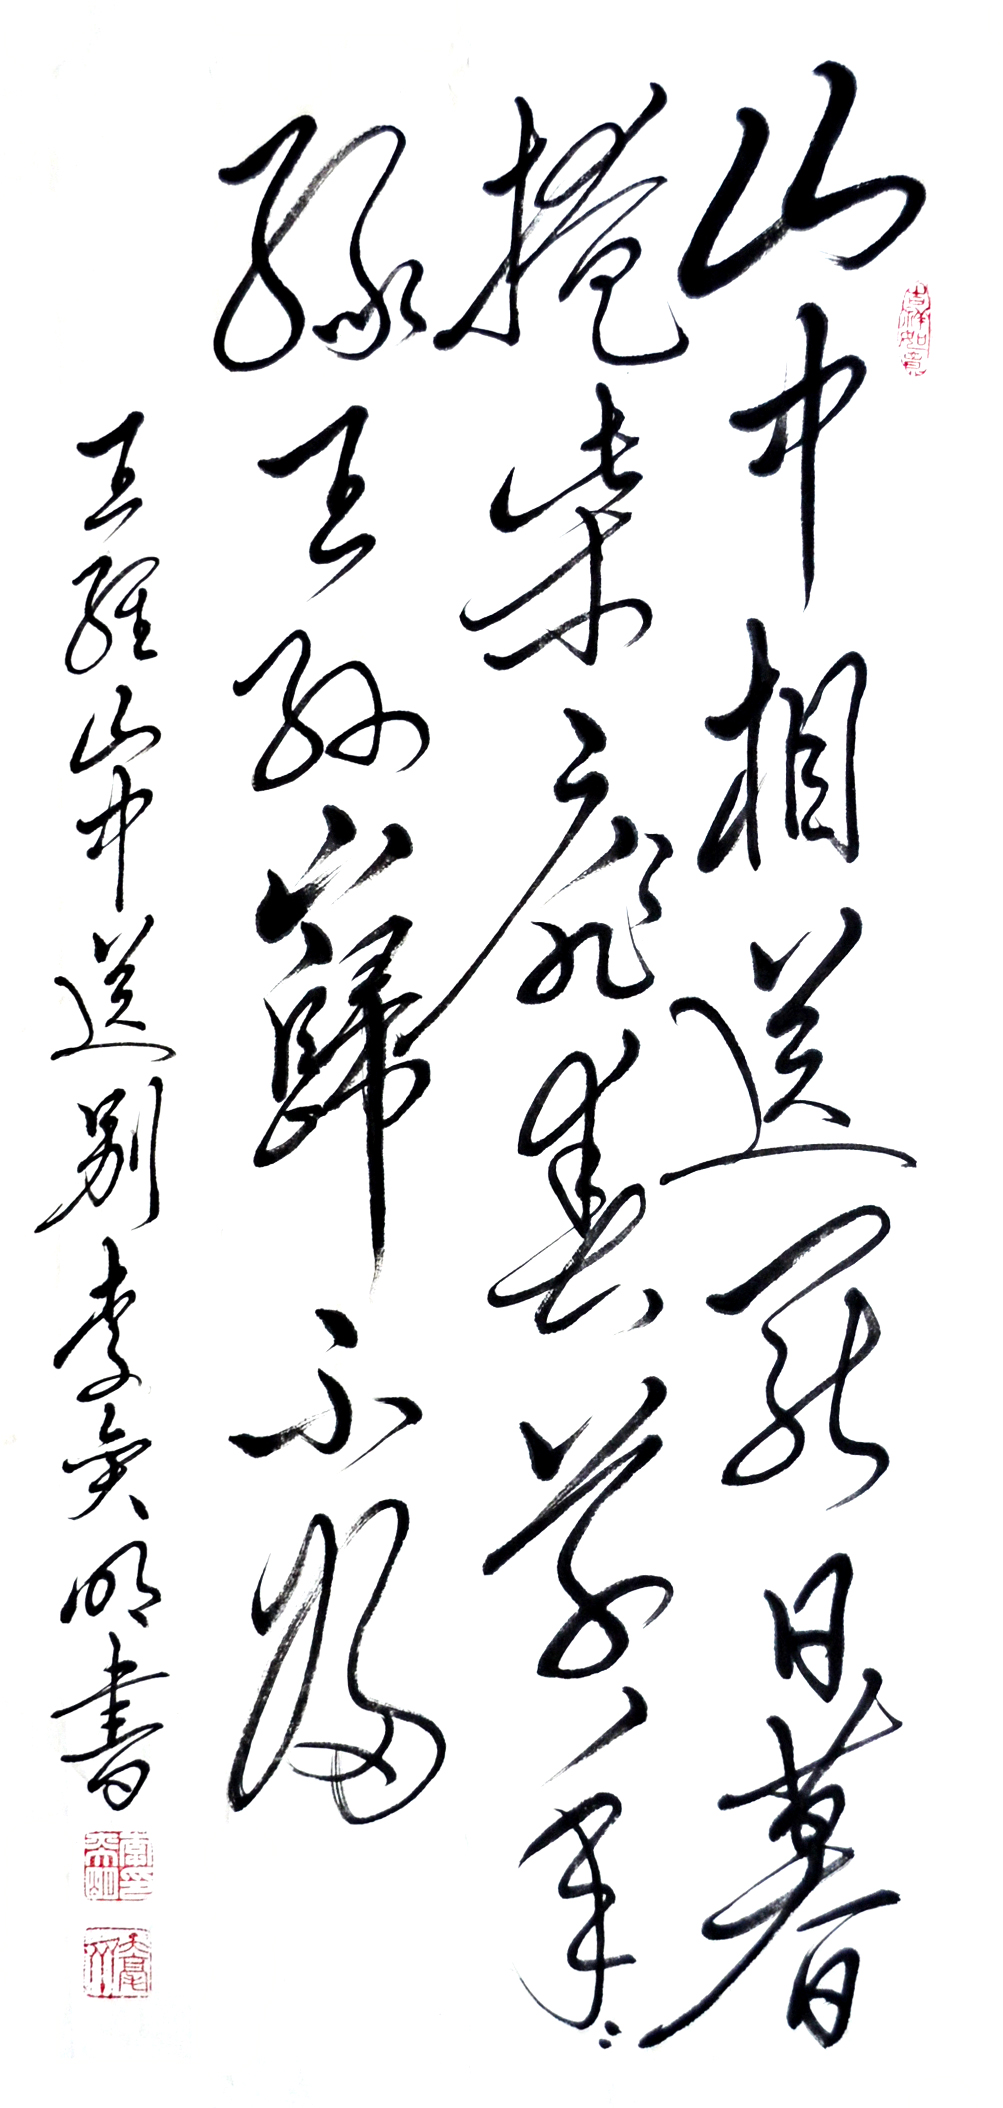 吉祥如意
山中相送罷日暮
掩柴扉春草年々
綠王孫歸不歸
王維山中送別李明書